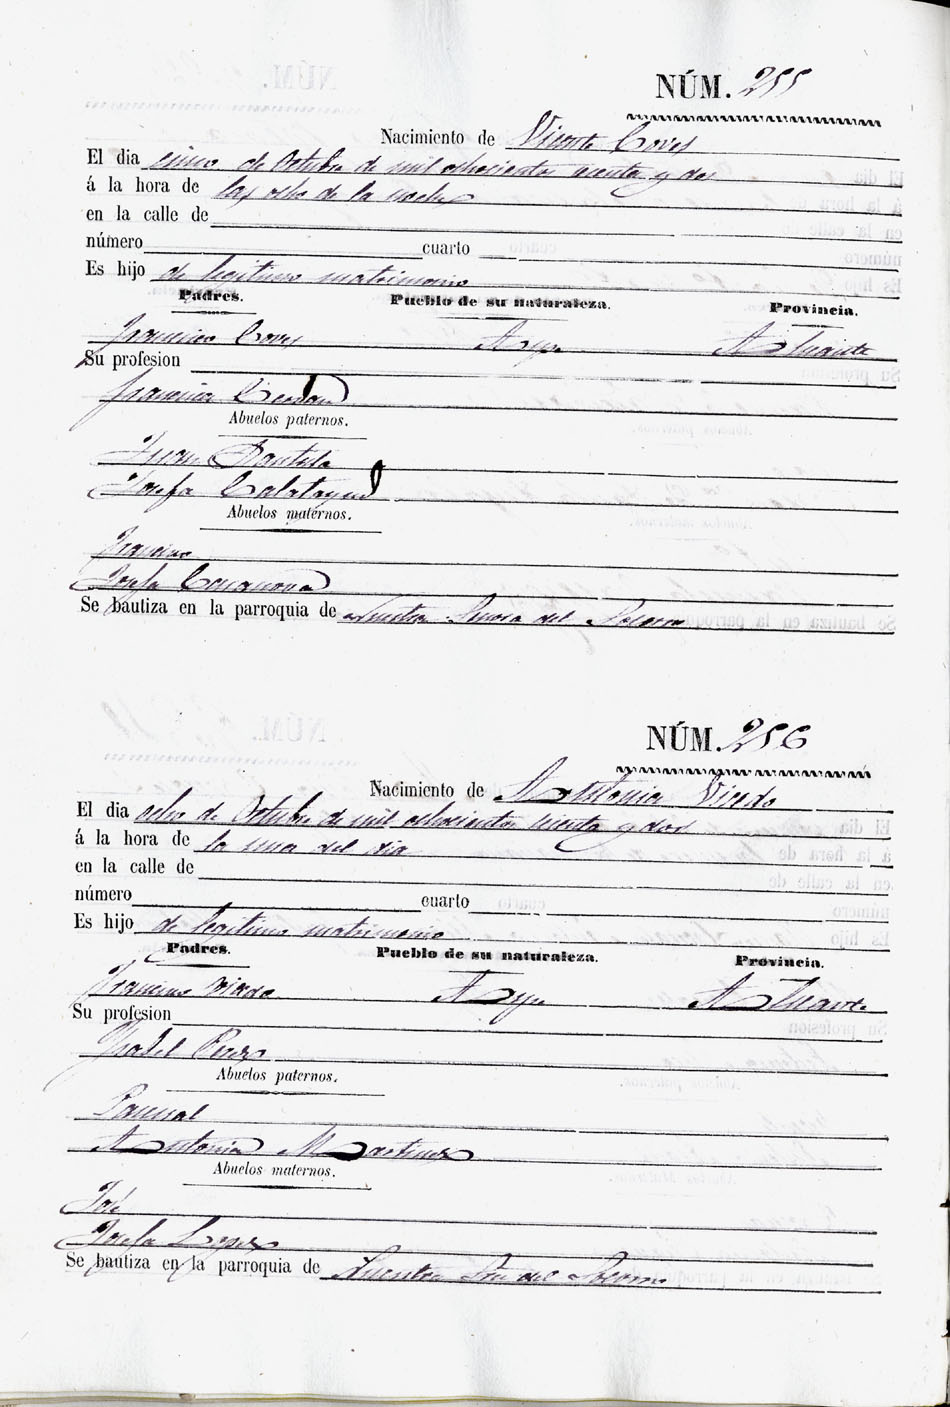 NÚM. 255
Nacimiento de Vicente Coves
El dia cinco de Octubre de mil ochocientos sesenta y dos
á la hora de las ocho de la noche
en la calle de
número cuarto
Es hijo de legitimo matrimonio
Padres. Pueblo de su naturaleza. Provincia.
Francisco Coves Aspe Alicante
Su profesion
Francisca
Abuelos paternos.
Juan Bautista
Josefa Calatayud
Abuelos maternos.
Francisco
Josefa Casanova
Se bautiza en la parroquia de Nuestra Señora del Socorro
NÚM. 256
Nacimiento de Antonia Vicedo
El dia ocho de Octubre de mil ochocientos sesenta y dos
á la hora de la una del dia
en la calle de
número cuarto
Es hijo de legitimo matrimonio
Padres. Pueblo de su naturaleza. Provincia.
Francisco Vicedo Aspe Alicante
Su profesion
Ysabel Perez
Abuelos paternos.
Pascual
Antonia Martinez
Abuelos maternos.
José
Josefa Lopez
Se bautiza en la parroquia de Nuestra Sra del Socorro